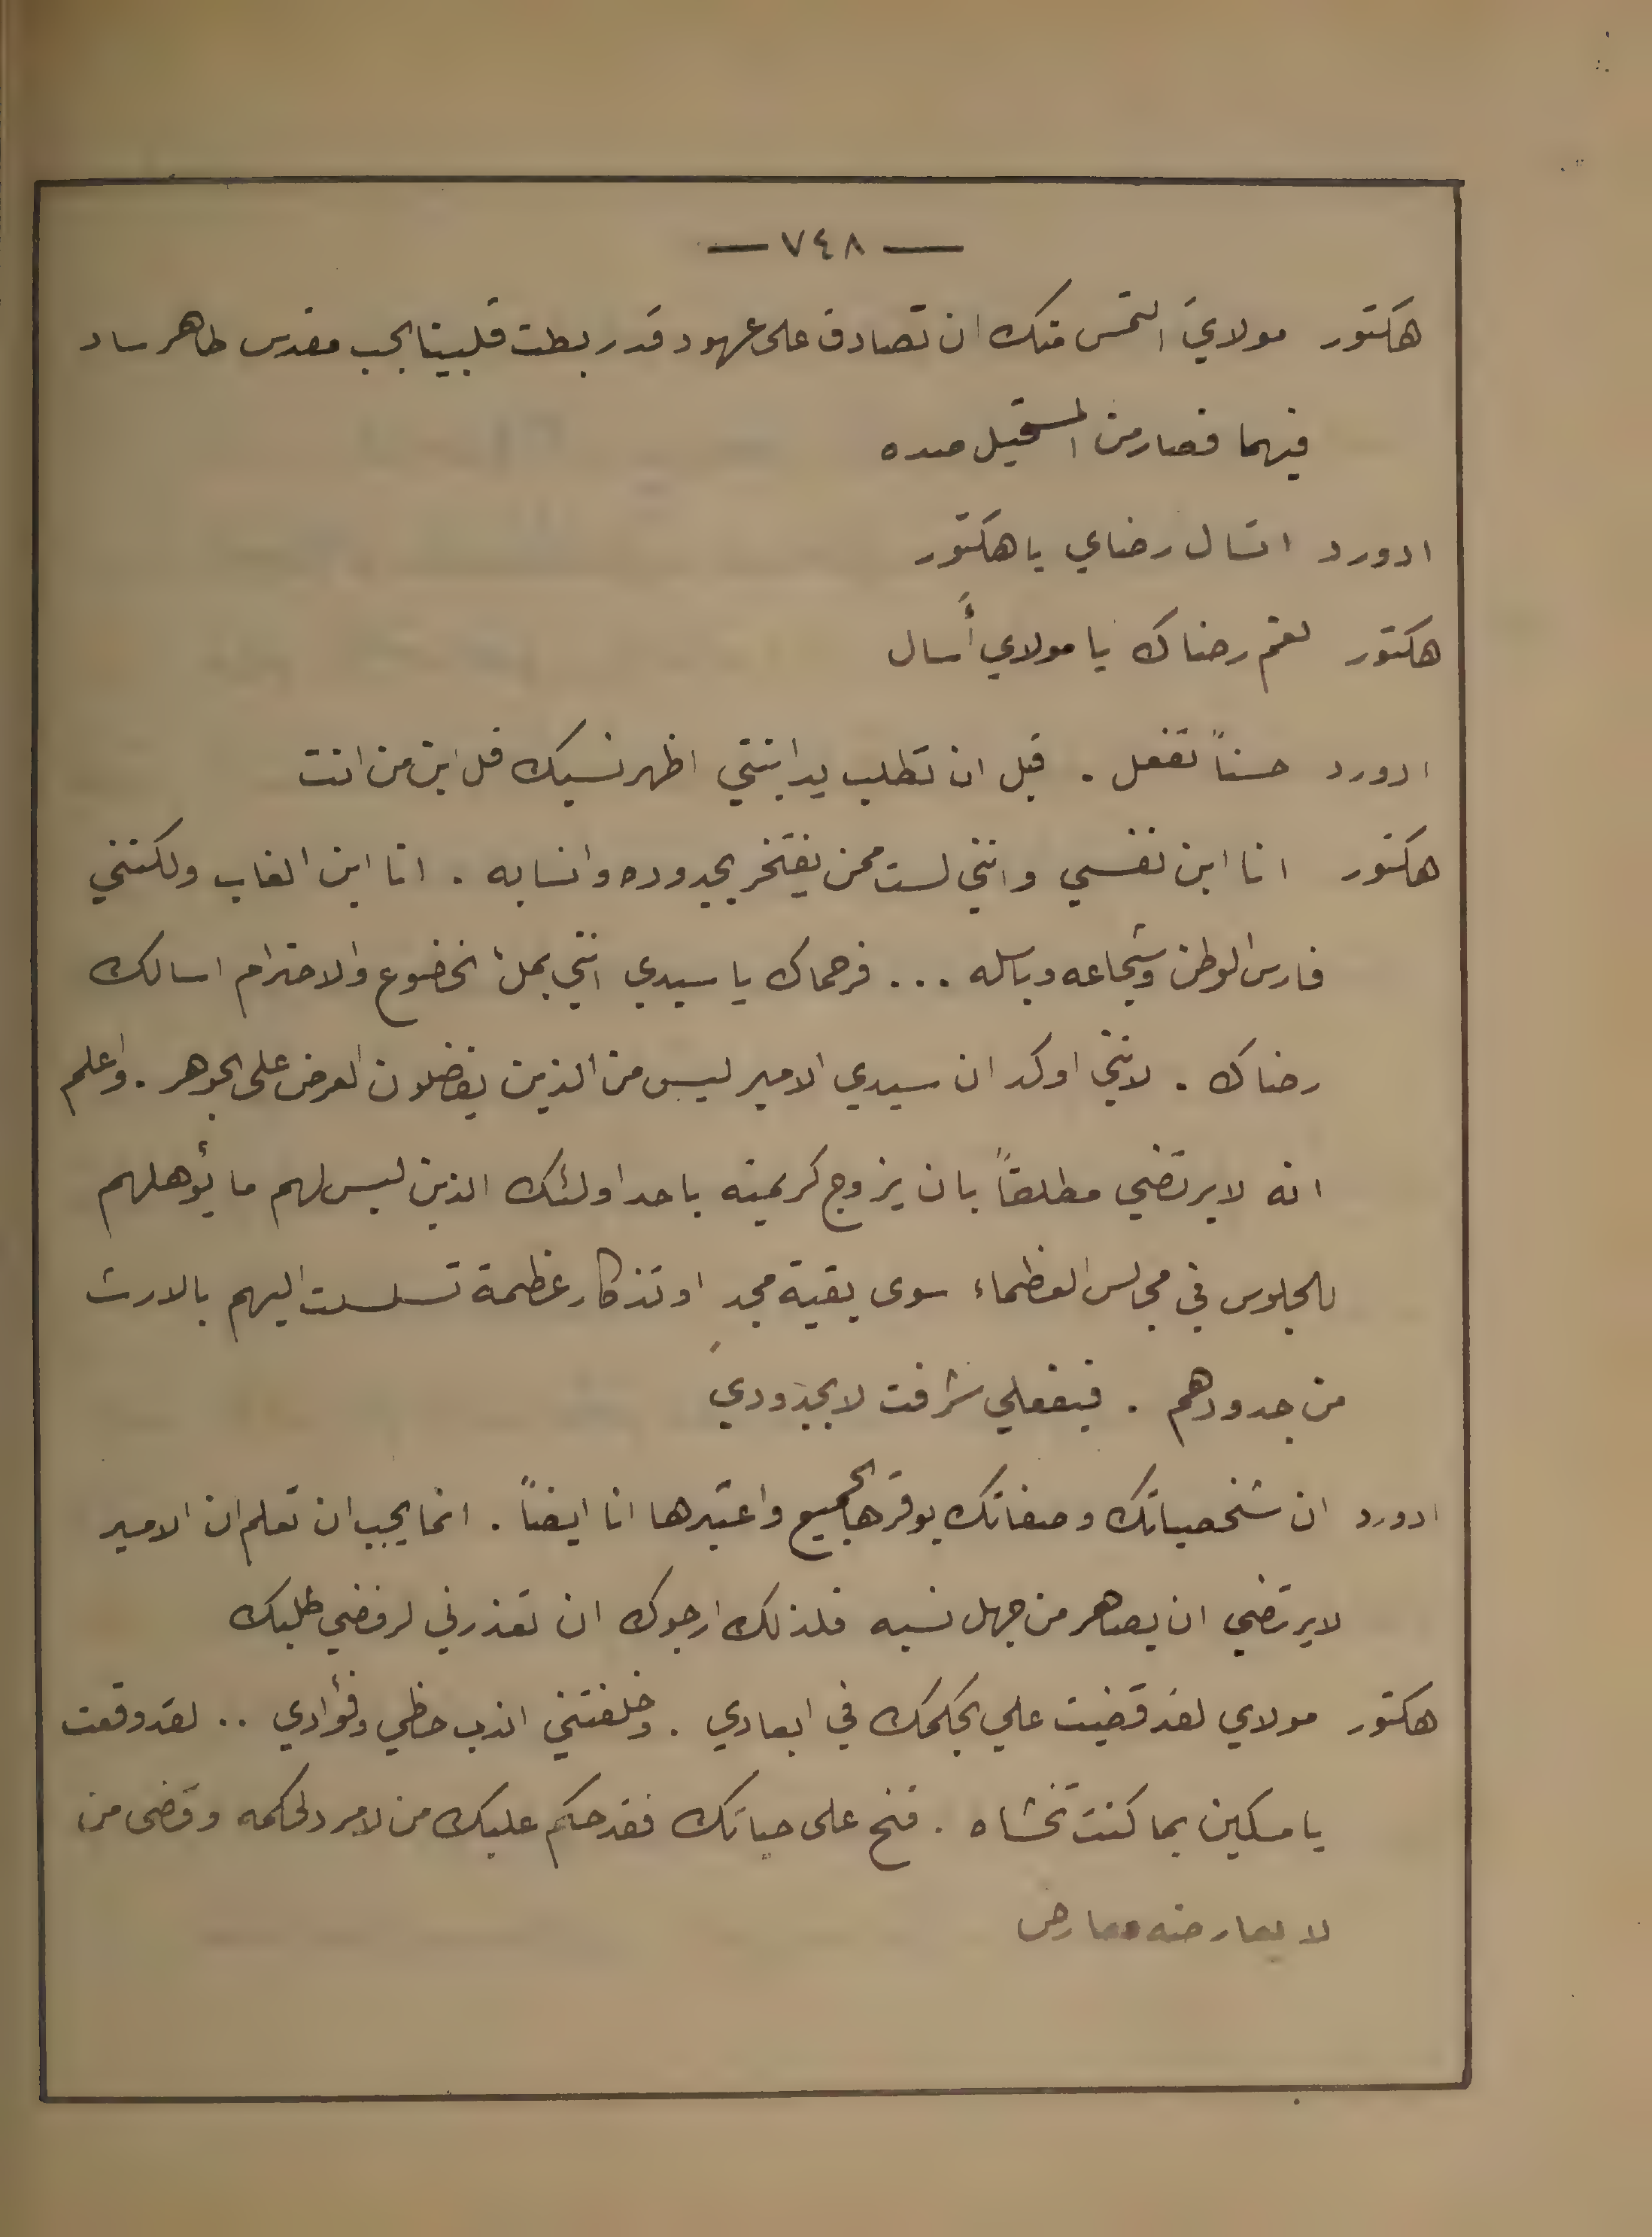 — ٧٤٨ —
هكتور مولايَ التمس منك ان تصادق على عهود قد ربطت قلبينا بحب مقدس طاهر ساد
فيهما فصار من المستحيل صده
ادورد اتسال رضاي يا هكتور
هكتور نعم رضاك يا مولاي أَسال
ادورد حسناً تفعل . قبل ان تطلب يد ابنتي اظهر نسبك قل ابن من انت
هكتور انا ابن نفسي وانني لست ممن يفتخر بجدوده وانسابه . انا ابن الغاب ولكنني
فارس الوطن وشجاعه وباسله ... فرحماك يا سيدي انني بملءُ الخضوع والاحترام اسالك
رضاك . لانني اوكد ان سيدي الامير ليس من الذين يفضلون العرض على الجوهر . واعلم
انه لا يرتضي مطلقاً بان يزوج كريمته باحد اولئك الذين ليس لهم ما يؤهلهم
للجلوس في مجالس العظماء سوى بقية مجد او تذكار عظمة تسلسلت اليهم بالارث
من جدودهم . فبفعلي شرفت لا بجدوديَ
ادورد ان شخصياتك وصفاتك يوقرها الجميع واعتبرها انا ايضاً . انما يجب ان تعلم ان الامير
لا يرتضي ان يصاهر من جهل نسبه فلذلك ارجوك ان تعذرني لرفضي طلبك
هكتور مولاي لقد قضيت علي بحكمك في ابعادي . وخلفتني اندب حظي وفؤادي .. لقد وقعت
يا مسكين بما كنت تخشاه . فنح على حياتك فقد حكم عليك من لا مرد لحكمه وقضى من
لا يعارضه معارض